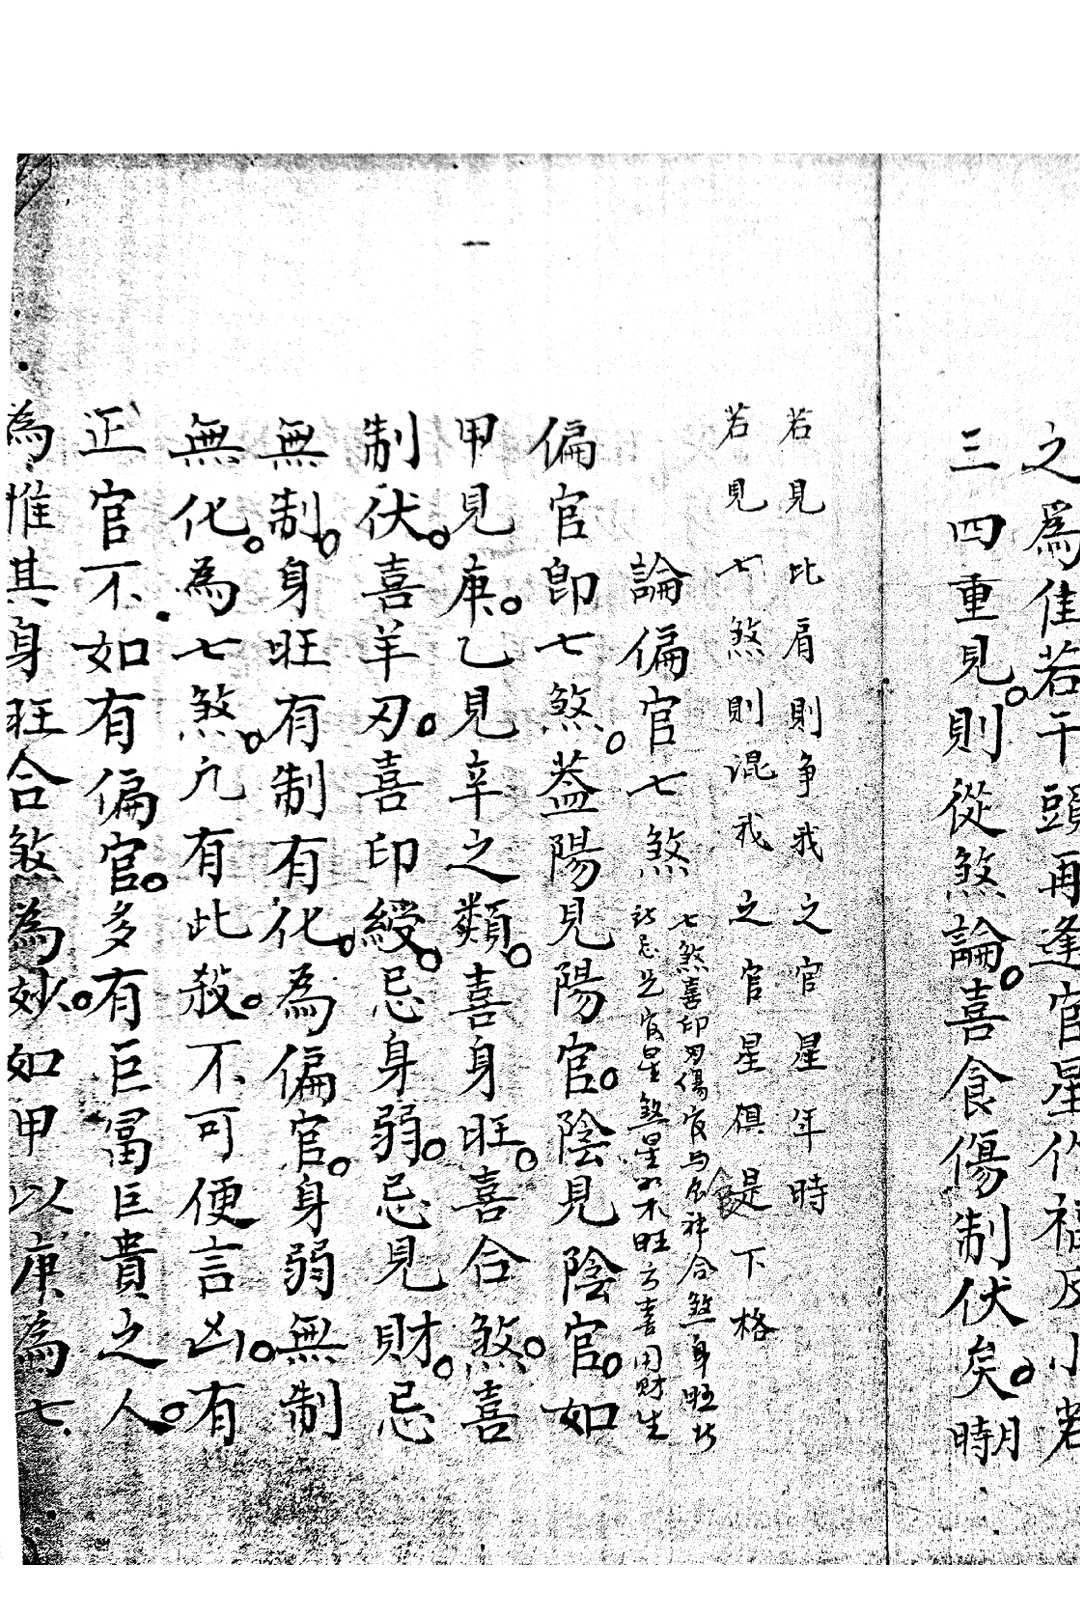 之為佳若干頭再逢官星作福反小若
三四重見則從煞論喜食傷制伏矣月時
若見比肩則争我之官星年時
若見七煞則混我之官星俱是下格
論偏官七煞
七煞喜印刃傷官与合神合煞身旺
忌見官星煞星不旺方喜用財生
偏官即七煞蓋陽見陽官陰見陰官如
甲見庚乙見辛之類喜身旺喜合煞喜
制伏喜羊刃喜印綬忌身弱忌見財忌
無制身旺有制有化為偏官身弱無制
無化為七煞凢有此殺不可便言凶有
正官不如有偏官多有巨冨巨貴之人
為惟其身旺合煞為妙如甲以庚為七